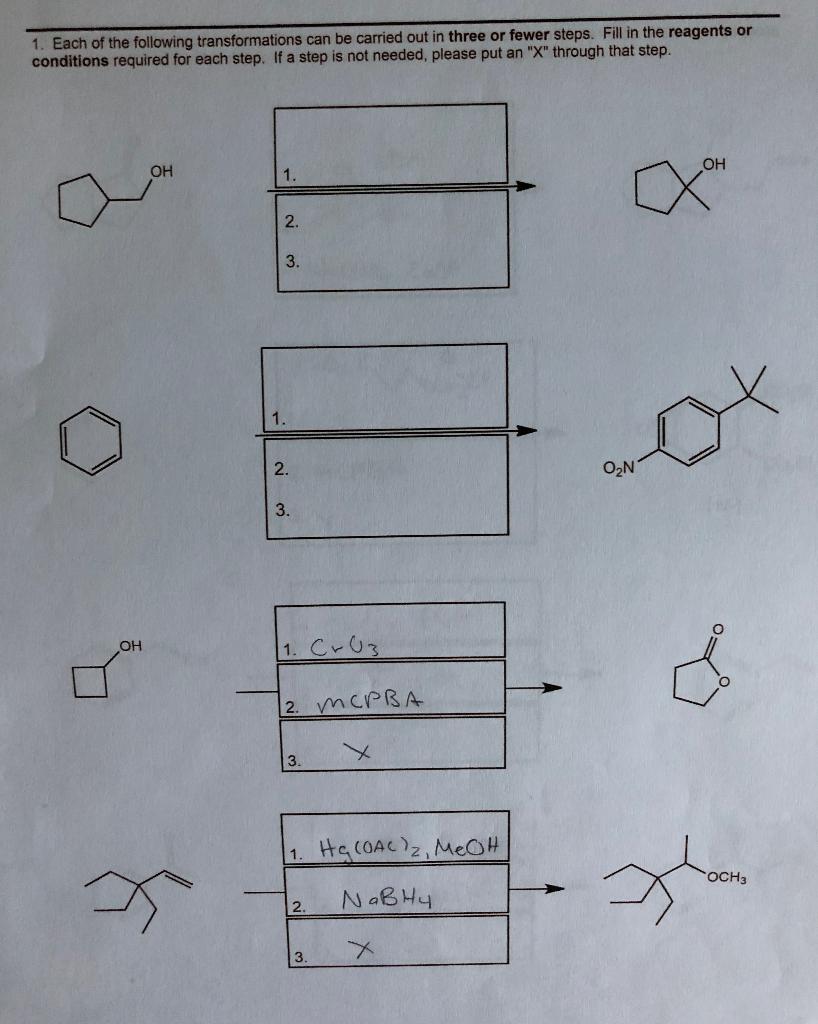 1. Each of the following transformations can be carried out in three or fewer steps. Fill in the reagents or
conditions required for each step. If a step is not needed, please put an "X" through that step.
OH
1.
2.
3.
OH
1.
2.
3.
O₂N
OH
1. CrO3
2. mCPBA
3. X
O
O
1. Hg(OAc)2, MeOH
2. NaBH4
3. X
OCH₃